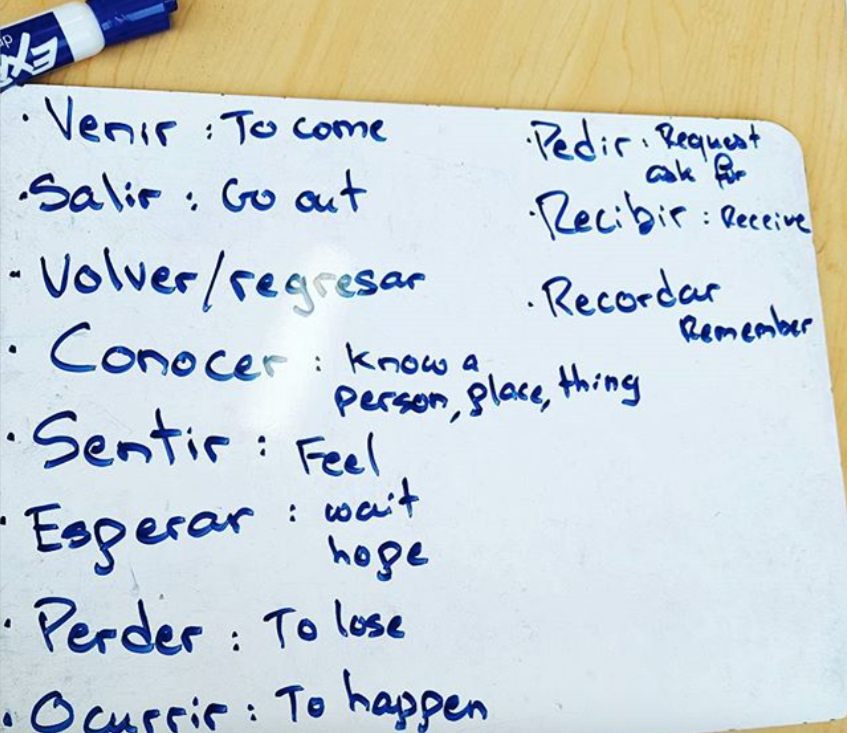 EXP
· Venir : To come
· Salir : Go out
· Volver/regresar
· Conocer : know a
person, place, thing
· Sentir : Feel
· Esperar : wait
hope
· Perder : To lose
· Ocurrir : To happen
· Pedir : Request
ask for
· Recibir : Receive
· Recordar
Remember